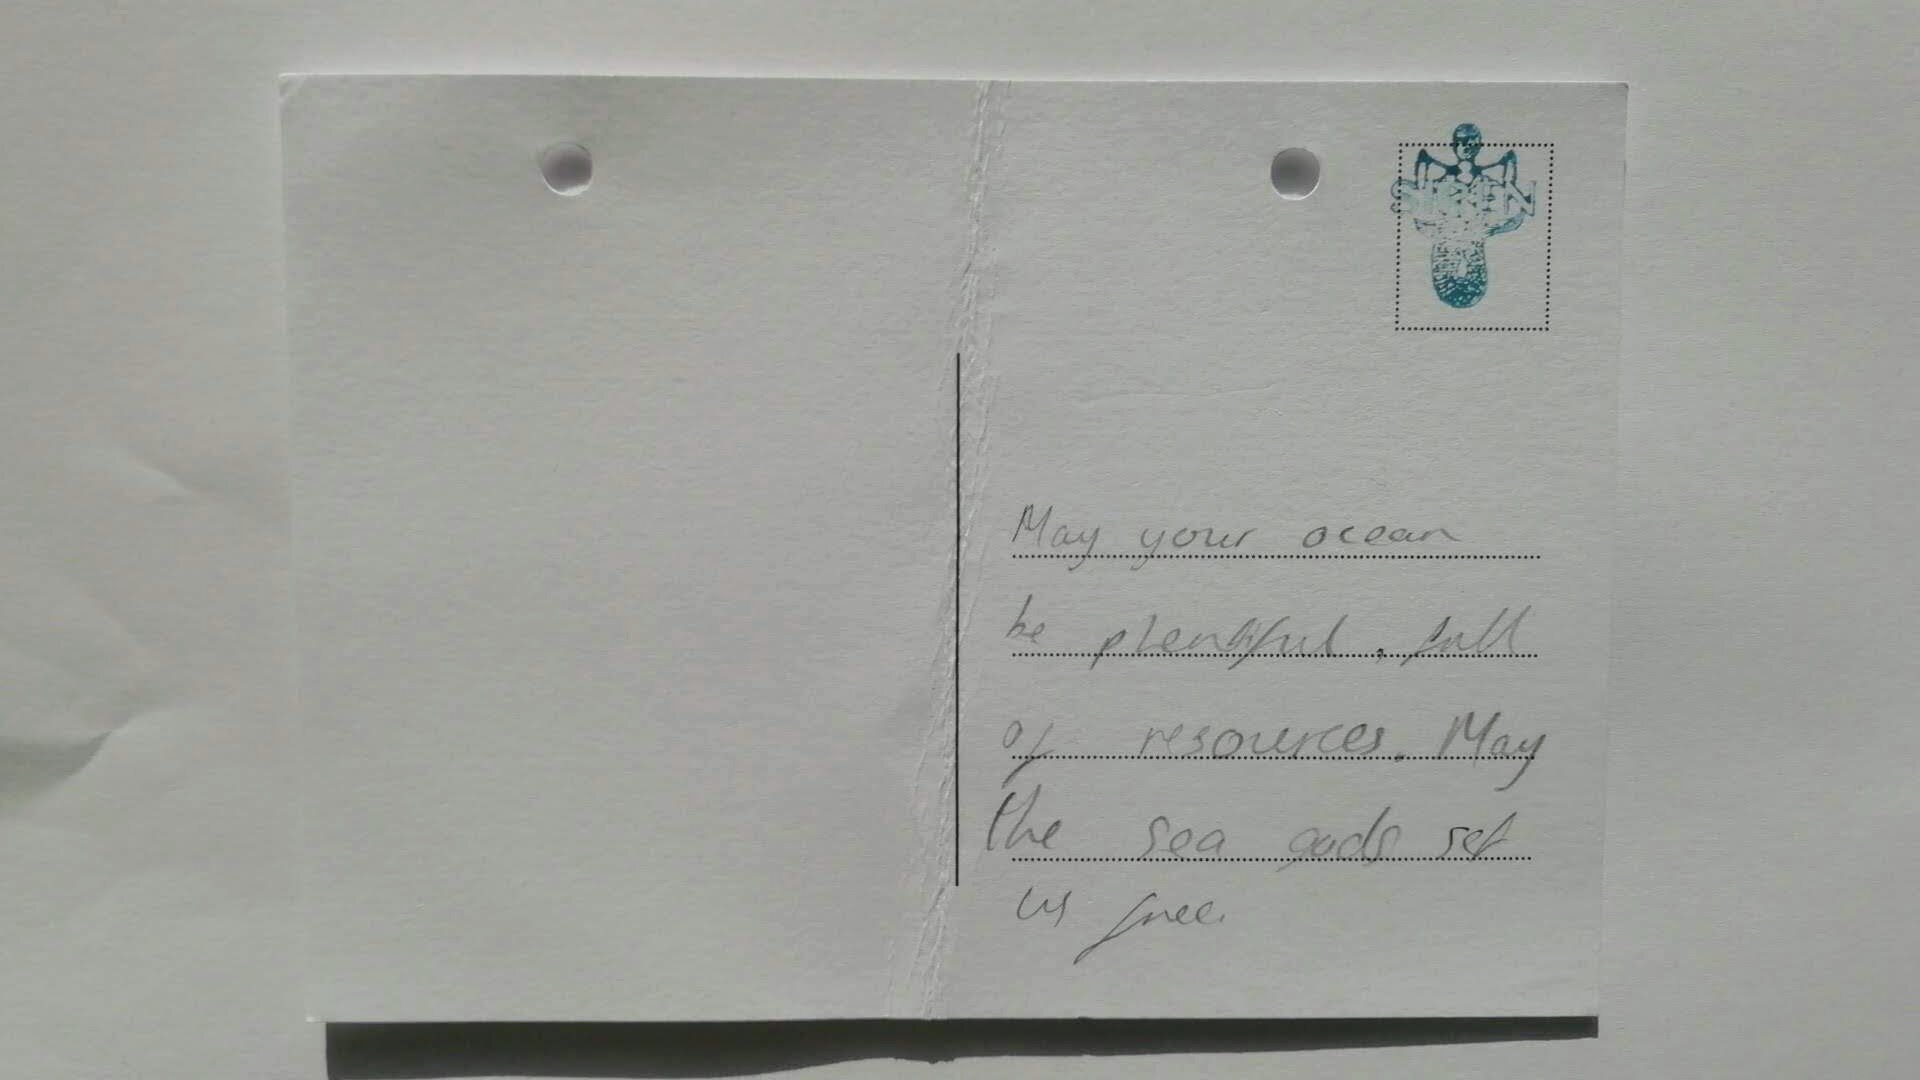 SIREN
May your ocean
be plentiful, full
of resources. May
the sea gods set
us free.